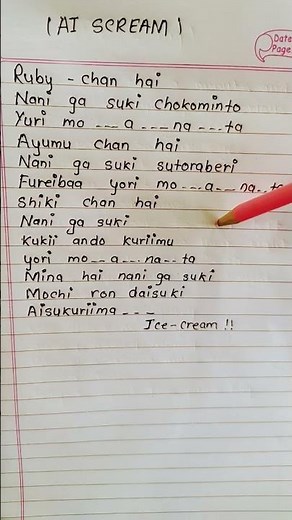 (AI SCREAM)
Date
Page
Ruby - chan hai
Nani ga suki chokominto
Yuri mo --- a --- na --- ta
Ayumu chan hai
Nani ga suki sutoraberi
Fureibaa yori mo --- a --- na -- ta
Shiki chan hai
Nani ga suki
Kukii ando kuriimu
yori mo -- a --- na -- ta
Mina hai nani ga suki
Mochi ron daisuki
Aisukuriima - - -
Ice-cream !!